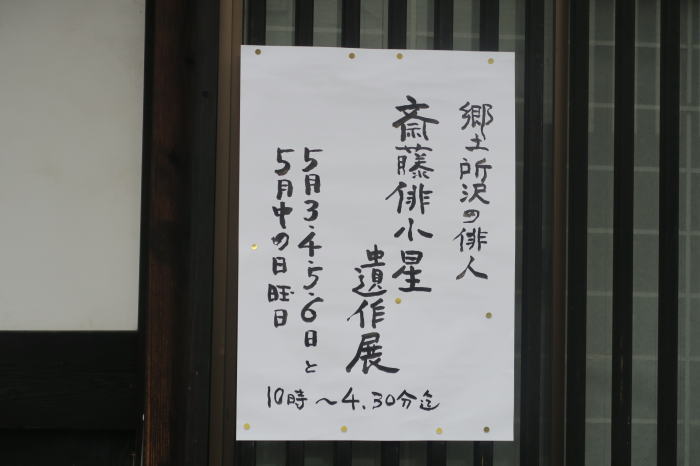 郷土所沢の俳人
斎藤俳小星
遺作展
5月3.4.5.6日と
5月中の日旺日
10時～4.30分迄